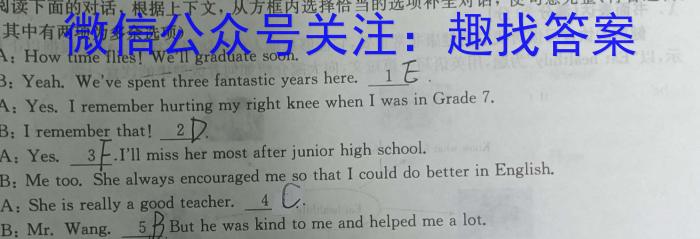 阅读下面的对话，根据上下文，从方框内选择恰当的选项补全对话，使句意完整
其中有两项为多余选项
微信公众号关注：趣找答案
A: How time flies! We'll graduate soon.
B: Yeah. We've spent three fantastic years here. 1 E .
A: Yes. I remember hurting my right knee when I was in Grade 7.
B: I remember that! 2 D.
A: Yes. 3 F.I'll miss her most after junior high school.
B: Me too. She always encouraged me so that I could do better in English.
A: She is really a good teacher. 4 C.
B: Mr. Wang. 5 B But he was kind to me and helped me a lot.